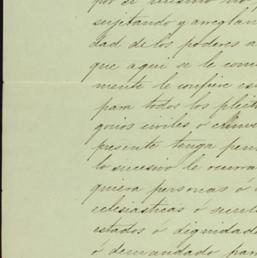 por si mismo no
sujetando y arreglan
dad de los poderes a
que aqui se le conce
mente le confiere es
para todos los pleit
gocios civiles o crimi
presente tenga pen
lo sucesivo le ocurra
quiera personas ó
eclesiasticas ó secul
estados ó dignidad
ó demandado par